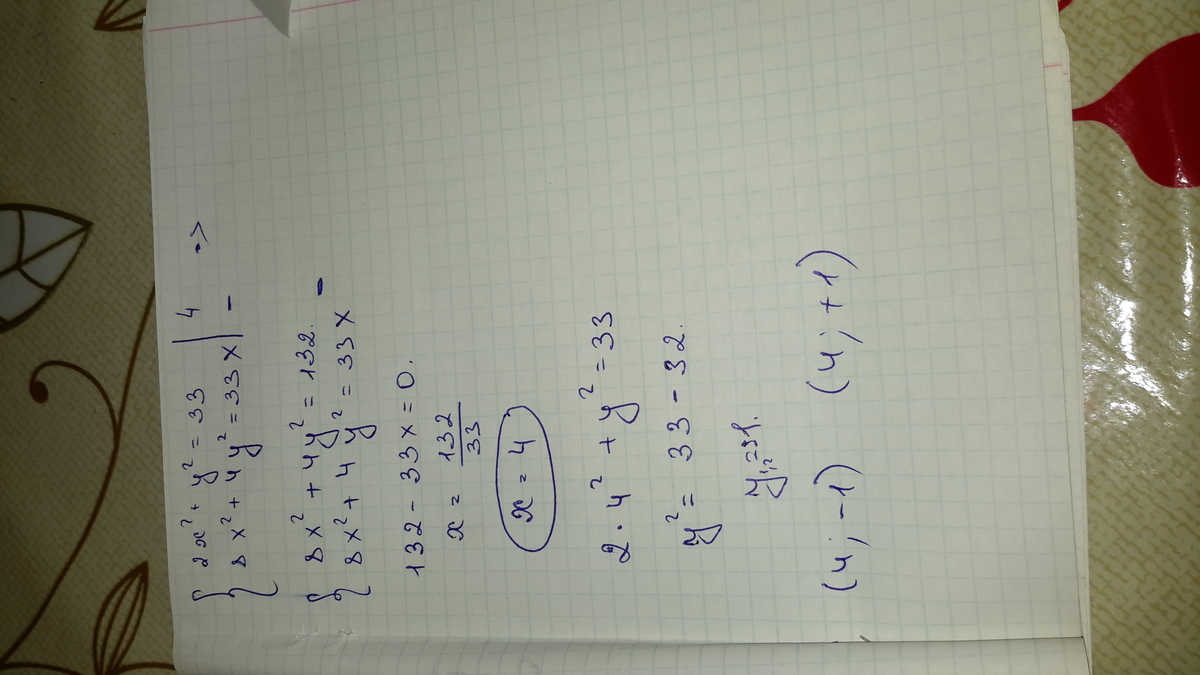 { 2x² + y² = 33 | 4 ->
8x² + 4y² = 33x | -
{ 8x² + 4y² = 132. -
8x² + 4y² = 33x
132 - 33x = 0.
x = 132/33
x = 4
2 · 4² + y² = 33
y² = 33 - 32.
y₁,₂ = ±1.
(4; -1) (4; +1)